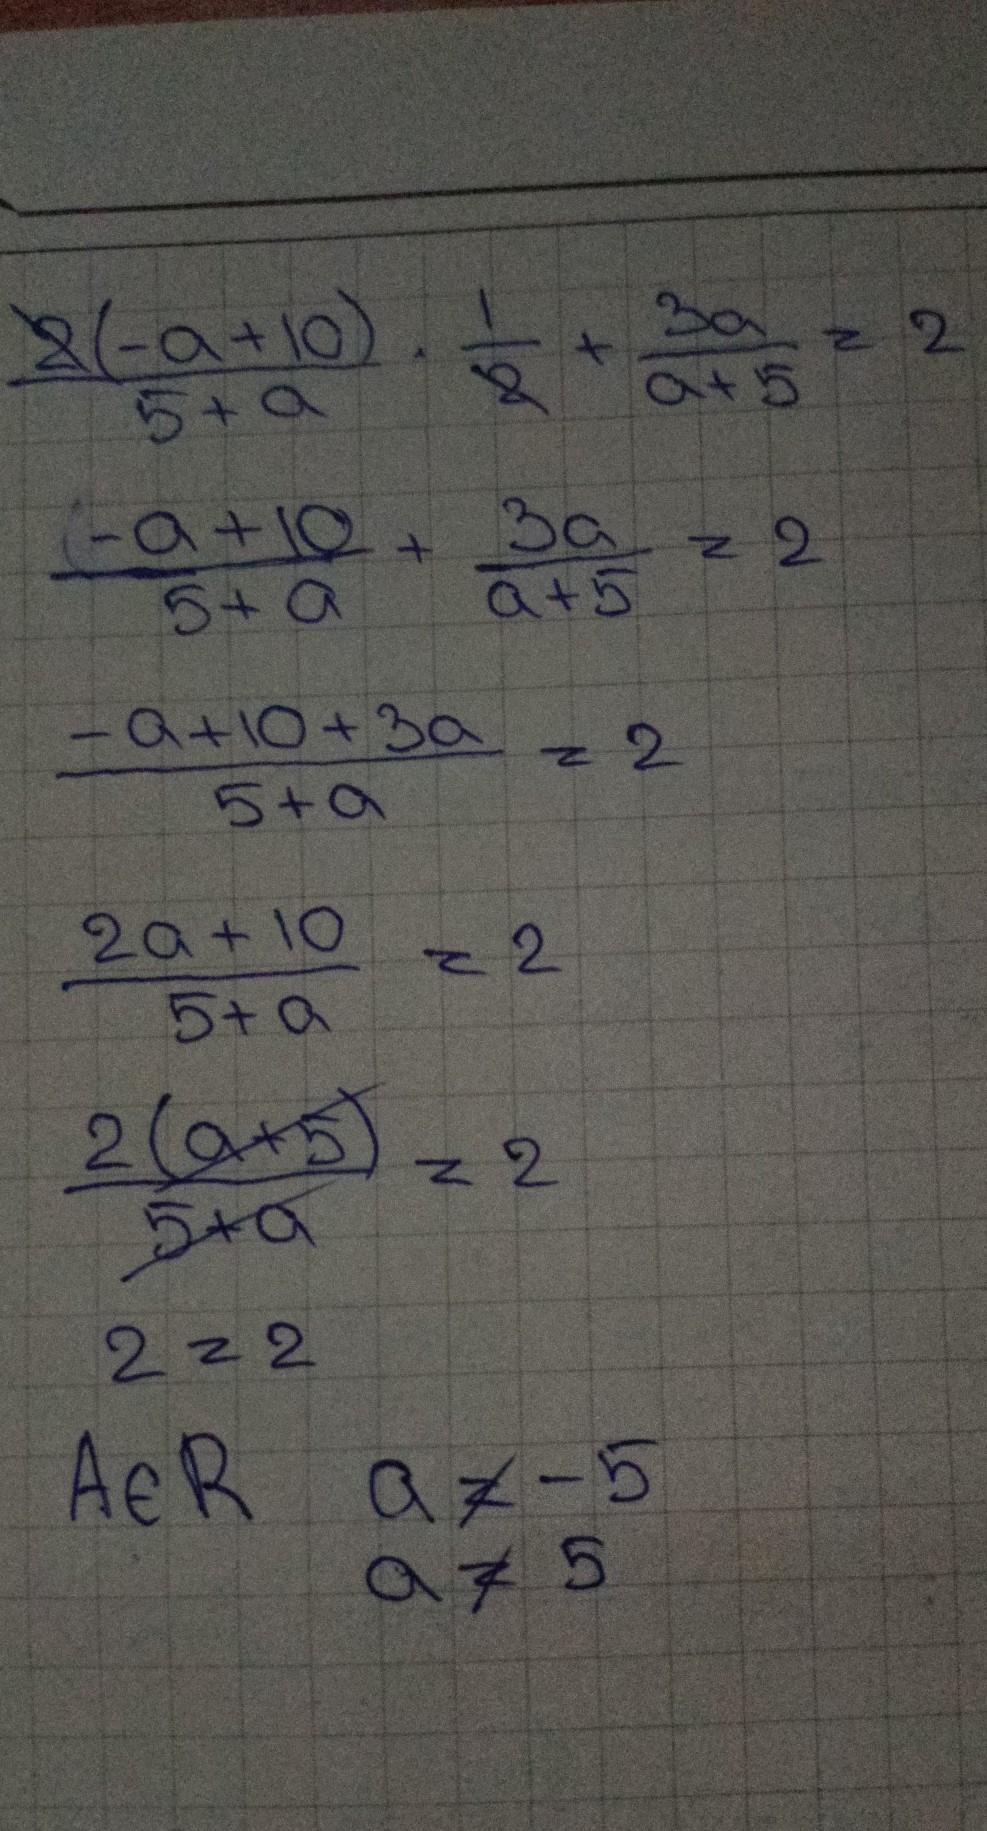 2(-a+10)/5+a · 1/2 + 3a/a+5 = 2
(-a+10/5+a + 3a/a+5 = 2
-a+10+3a/5+a = 2
2a+10/5+a = 2
2(a+5)/5+a = 2
2=2
A∈R a≠-5
a≠5